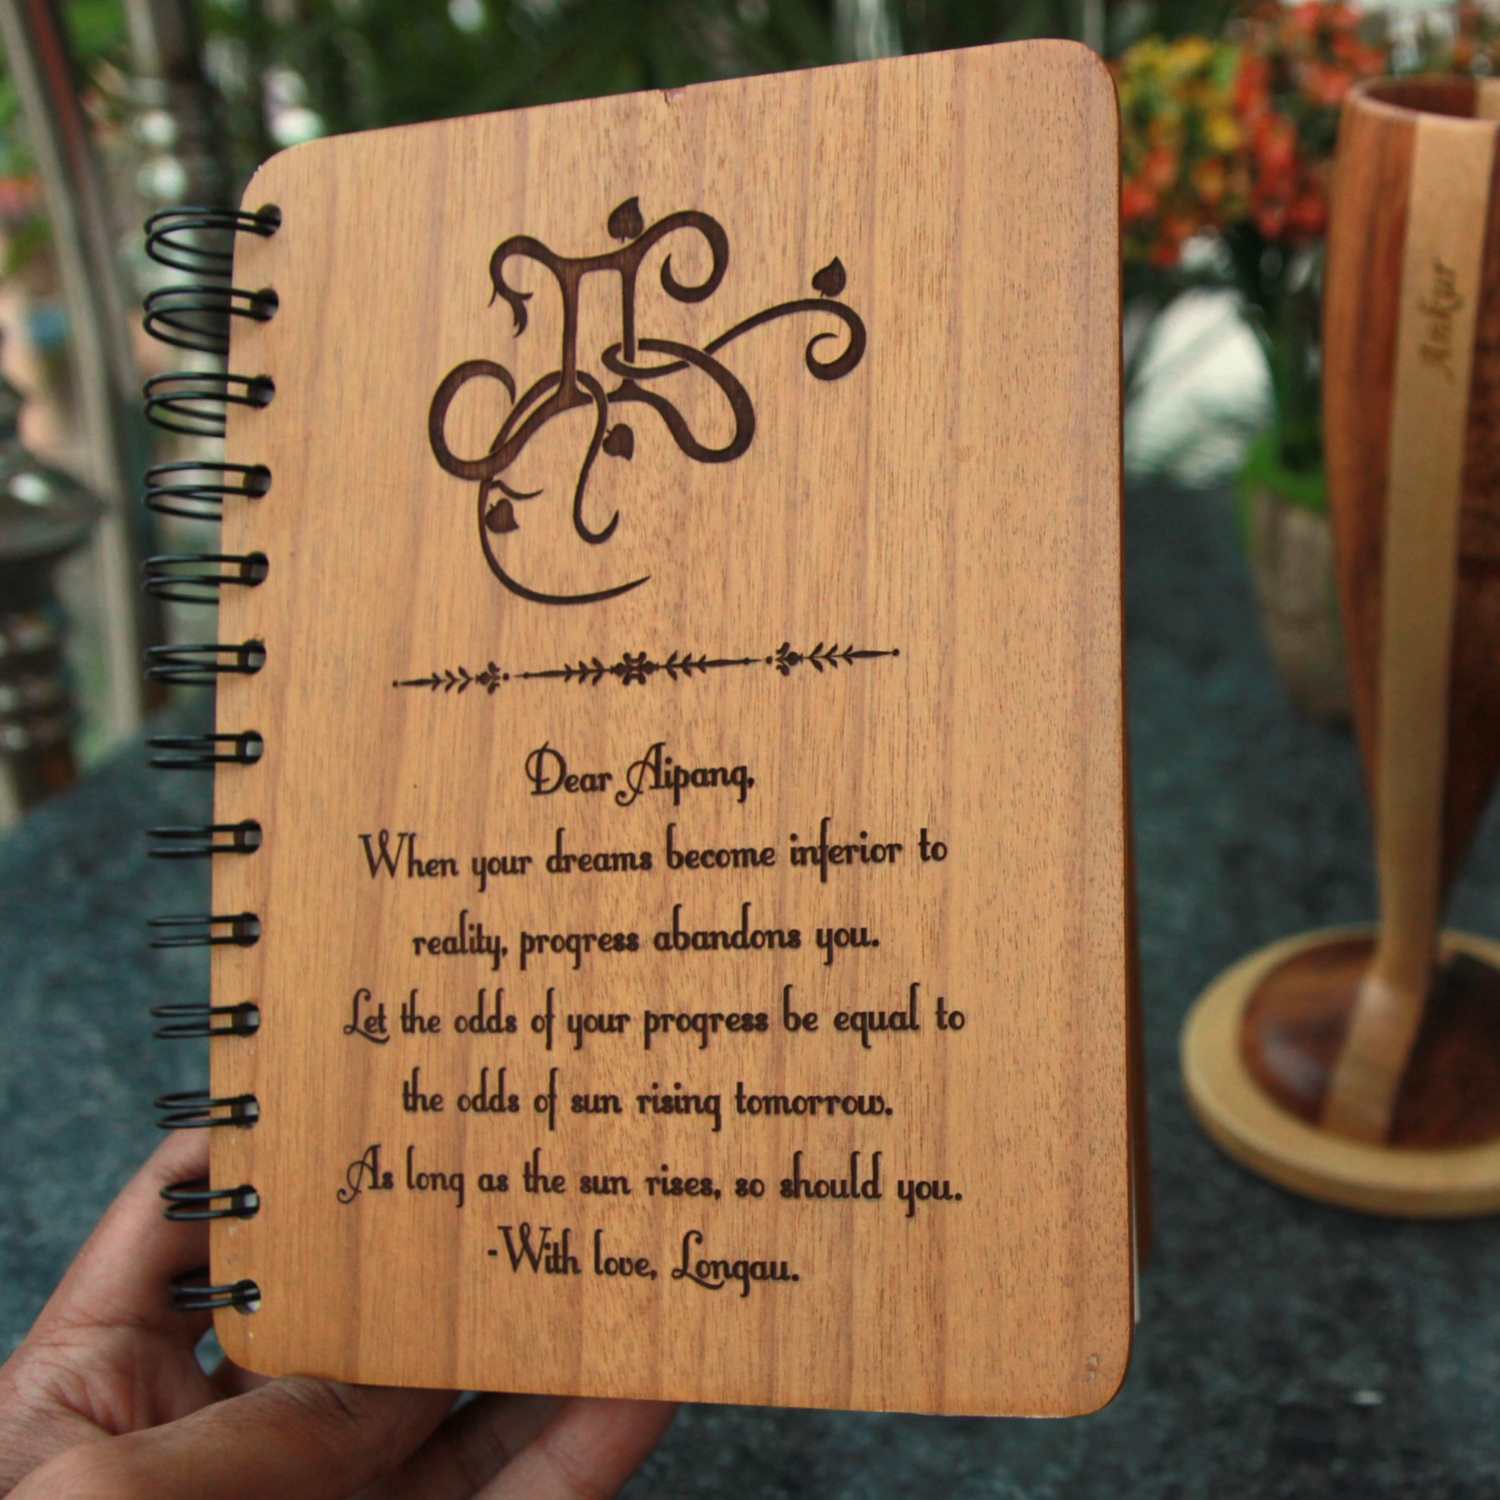 Dear Aipang,
When your dreams become inferior to
reality, progress abandons you.
Let the odds of your progress be equal to
the odds of sun rising tomorrow.
As long as the sun rises, so should you.
-With love, Longau.
Ankur